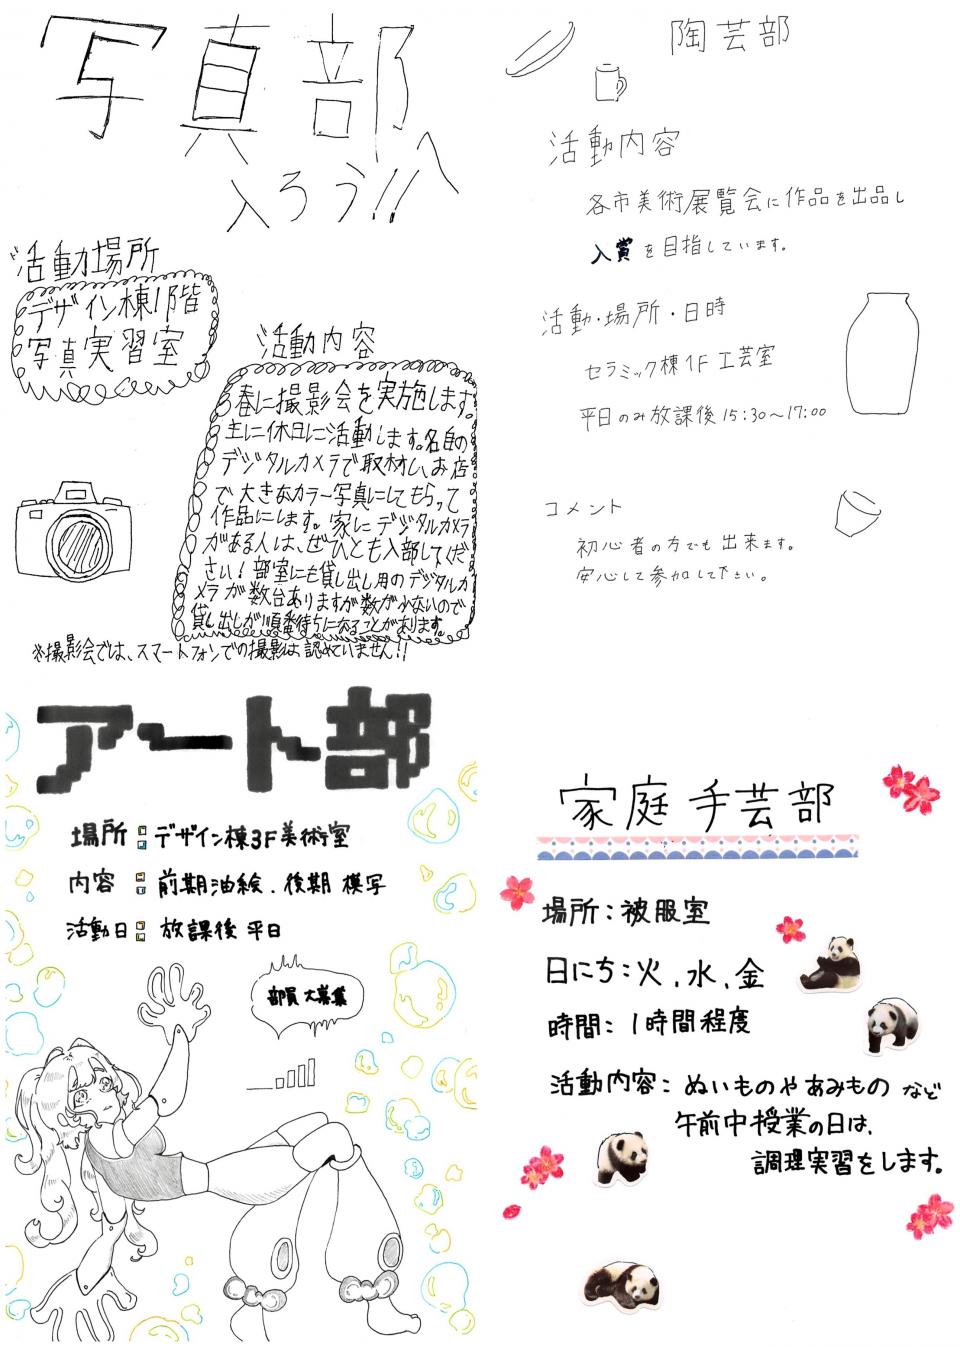 写真部へ
入ろう!!
活動場所
デザイン棟1階
写真実習室
活動内容
春に撮影会を実施します。
主に休日に活動します。各自の
デジタルカメラで取材し、お店
で大きなカラー写真にしてもらって
作品にします。家にデジタルカメラ
がある人は、ぜひとも入部してくだ
さい!部室にも貸し出し用のデジタルカ
メラが数台ありますが数が少ないので
貸し出しが順番待ちになることがあります。
※撮影会では、スマートフォンでの撮影は認めていません!!
陶芸部
活動内容
各市美術展覧会に作品を出品し
入賞を目指しています。
活動・場所・日時
セラミック棟1F工芸室
平日のみ放課後15:30~17:00
コメント
初心者の方でも出来ます。
安心して参加して下さい。
アート部
場所:デザイン棟3F美術室
内容:前期油絵.後期模写
活動日:放課後平日
部員大募集
家庭手芸部
場所:被服室
日にち:火、水、金
時間:1時間程度
活動内容:ぬいものやあみものなど
午前中授業の日は、
調理実習をします。